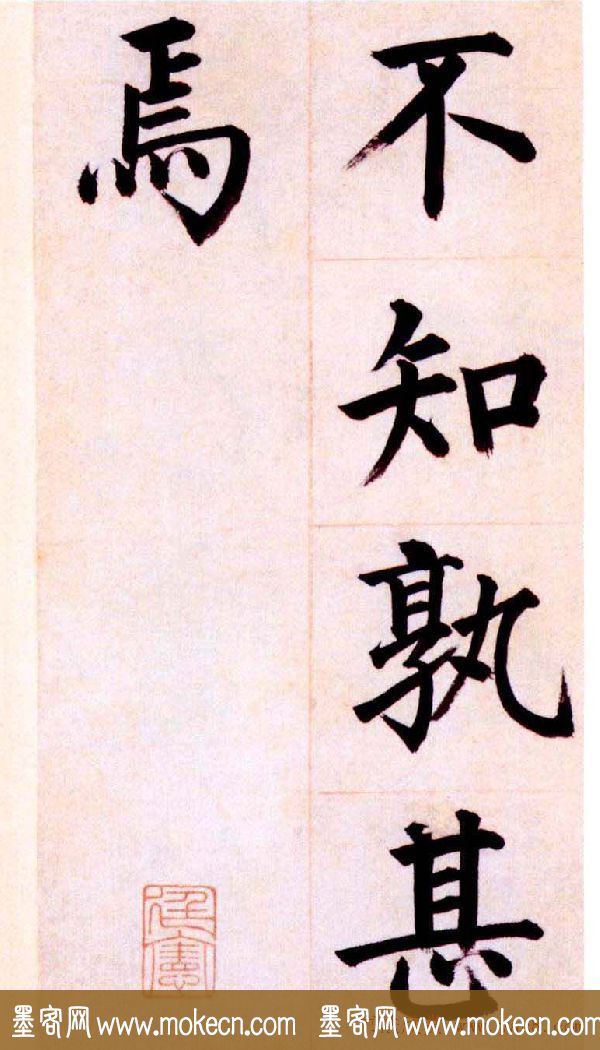 不知孰甚
焉
墨客网 www.mokecn.com 墨客网 www.mokecn.com